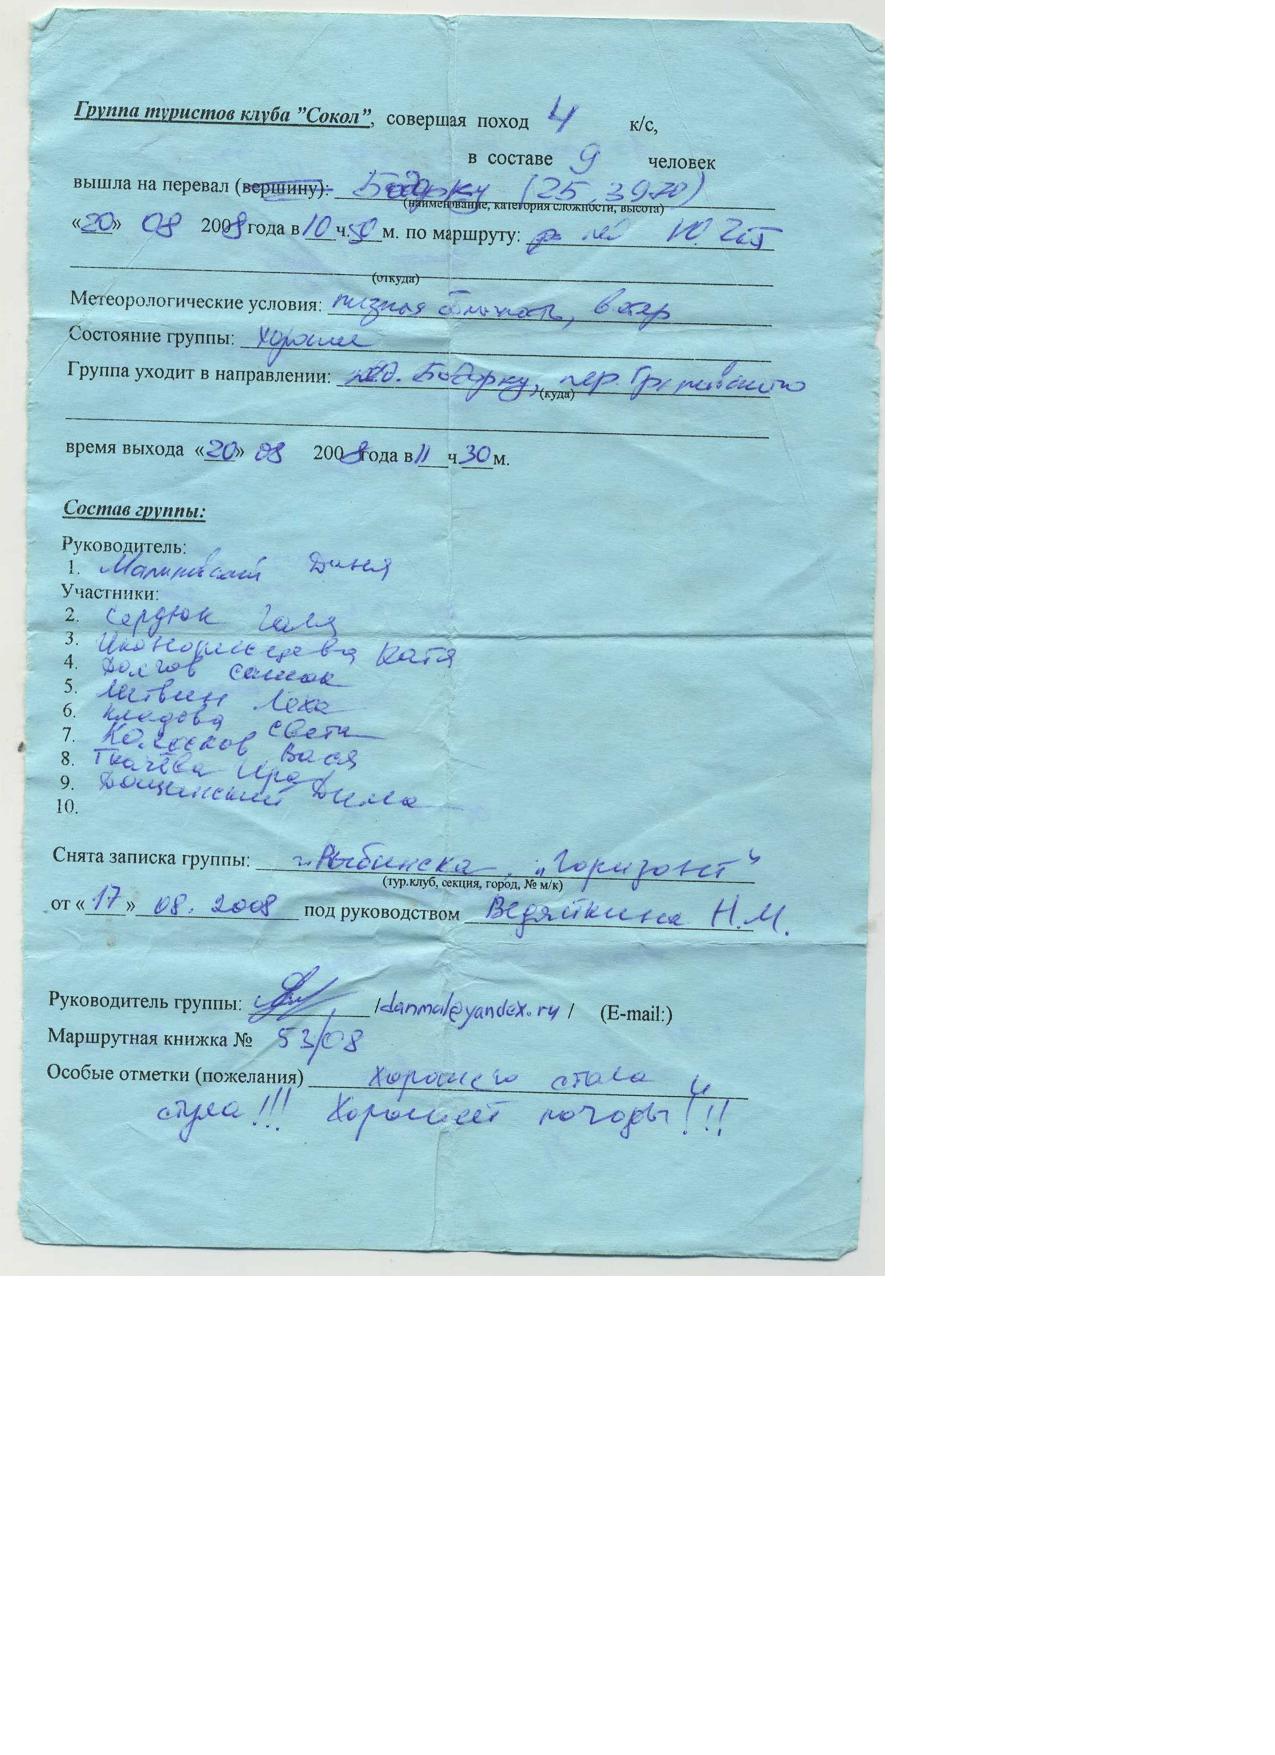 Группа туристов клуба "Сокол", совершая поход 4 к/с,
в составе 9 человек
вышла на перевал (вершину): Бодорку (2Б, 3920)
(наименование, категория сложности, высота)
«20» 08 2008 года в 10 ч. 50 м. по маршруту:
(откуда)
Метеорологические условия: низкая облачность, ветер
Состояние группы: хорошее
Группа уходит в направлении: лед. Бодорку, пер.
(куда)
время выхода «20» 08 2008 года в 11 ч 30 м.
Состав группы:
Руководитель:
1. Малиновский Даня
Участники:
2. Сердюк Галя
3. Катя
4. Долгов Сашок
5. Литвин Леха
6. Кладова Света
7. Колосков Вася
8. Ткачёва Ира
9. Дощинский Дима
10.
Снята записка группы: г. Рыбинска, "Горизонт"
(тур.клуб, секция, город, № м/к)
от «17» 08. 2008 под руководством Ведяйкина Н.М.
Руководитель группы: /danmal@yandex.ru / (E-mail:)
Маршрутная книжка № 53/08
Особые отметки (пожелания) Хорошего стола и
стула!!! Хорошей погоды!!!